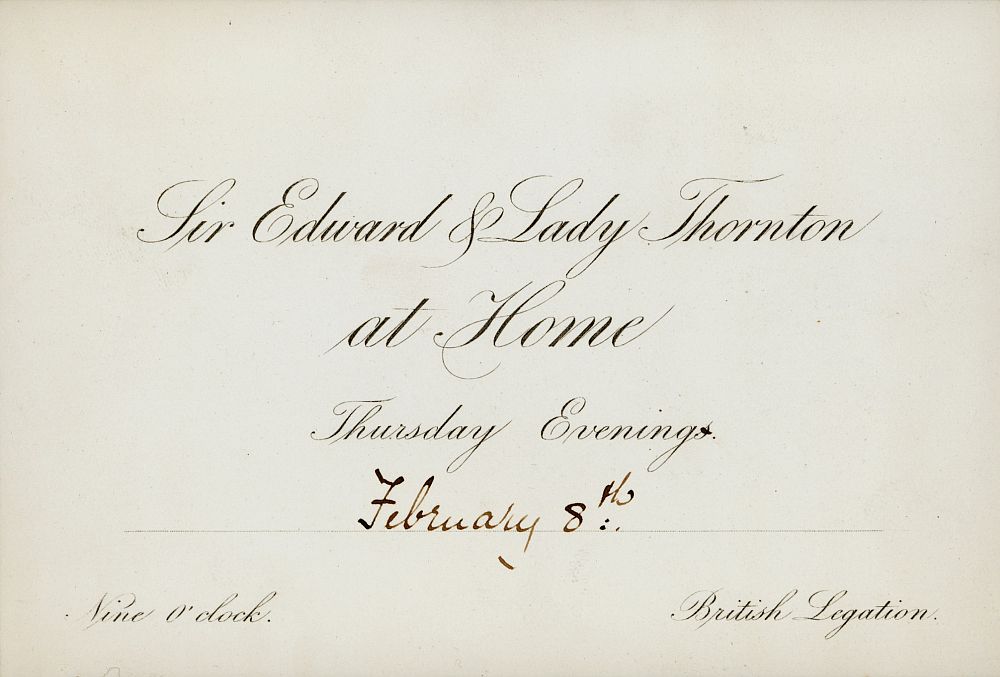 Sir Edward & Lady Thornton
at Home
Thursday Evenings.
February 8th
Nine O'clock.
British Legation.